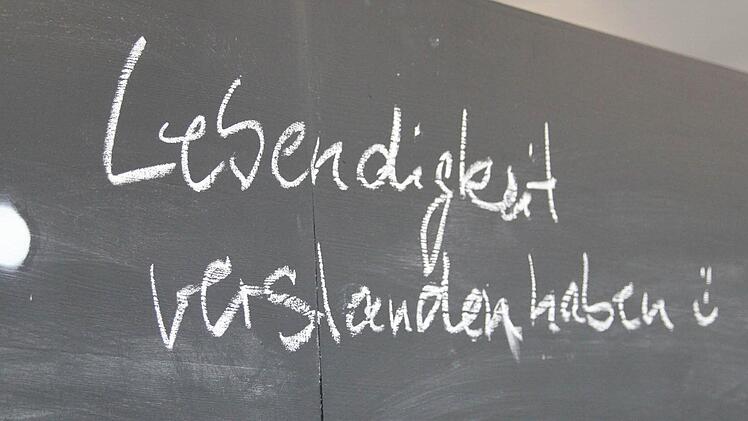 Lebendigkeit
verstanden haben :)